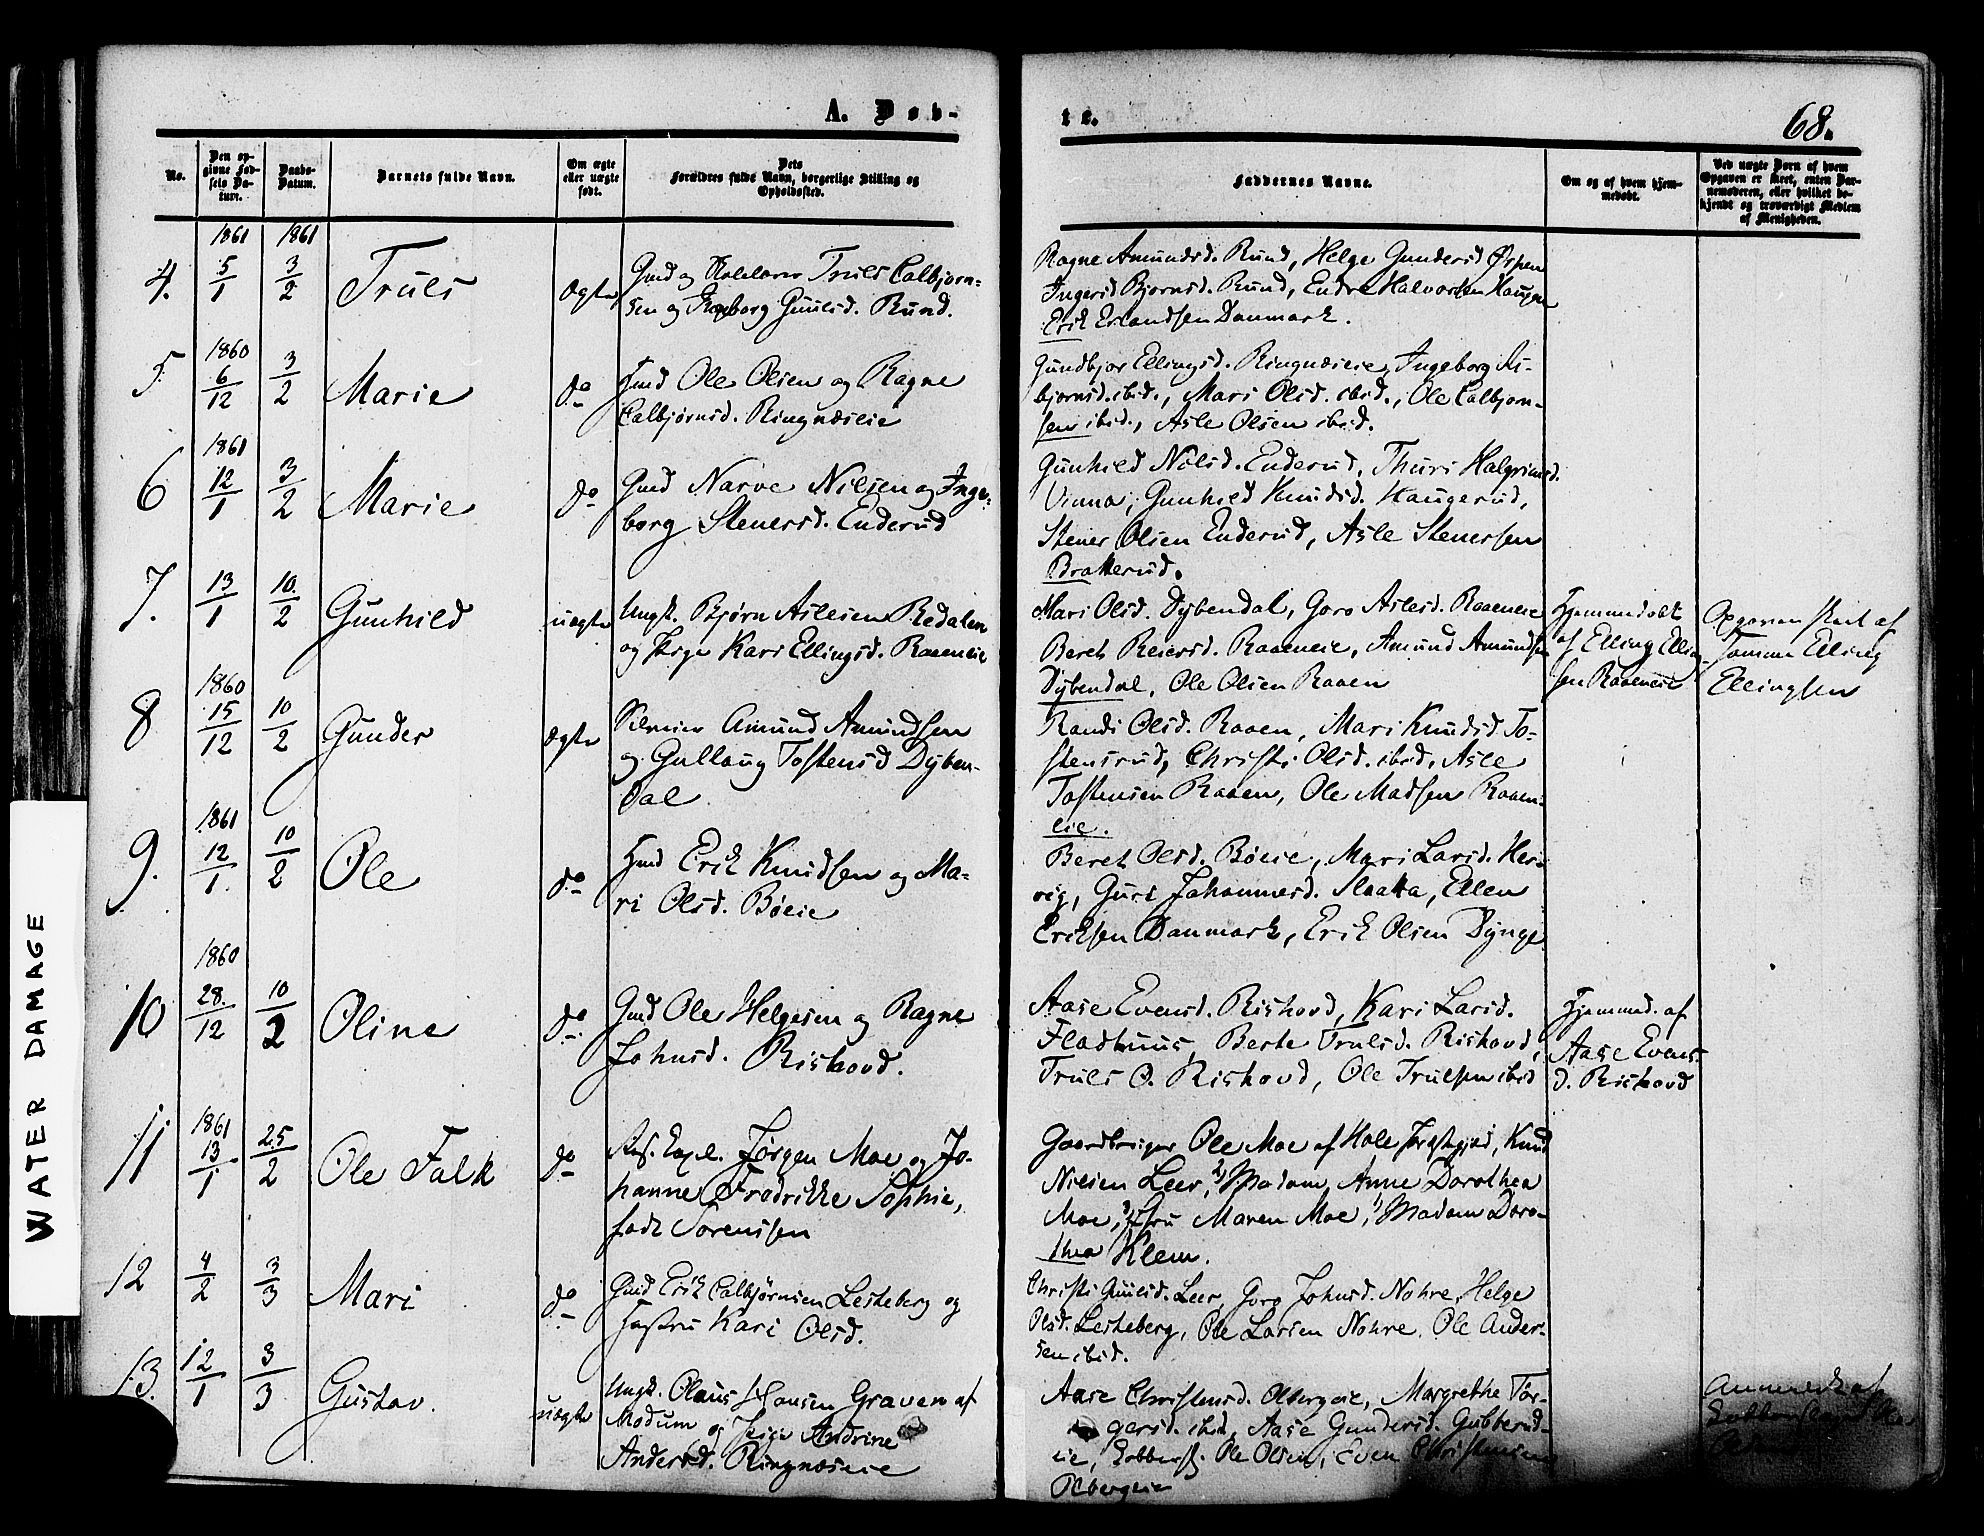 A. Døb-
te.
68.
No.
Den opgivne Fødsels Datum.
Daabs-Datum.
Barnets fulde Navn.
Om ægte eller uægte født.
Dets Forældres fulde Navn, borgerlige Stilling og Opholdssted.
Faddernes Navne.
Om og af hvem hjemmedøbt.
Ved uægte Børn af hvem Opgaven er skeet, enten Barnemoderen, eller hvilket bekjendt og troværdigt Medlem af Menigheden.
4.
1861
5/1
1861
3/2
Truls
ægte
Gmd og Truls Colbjørn-
sen og Ingeborg Guulsd. Rund.
Ragne Amundsd. Rund, Helge Gundersd Ørpen
Ingerid Bjornsd. Rund, Endre Halvorsen Haugen
Erik Erlandsen Danmark.
5.
1860
6/12
3/2
Marie
do
Hmd Ole Olsen og Ragne
Colbjørnsd. Ringnæseie
Gundbjor Ellingsd. Ringnæseie, Ingeborg As-
bjornsd. ibid., Mari Olsd. ibid., Ole Colbjørn-
sen ibid., Asle Olsen ibid.
6
1861
12/1
3/2
Marie
do
Gmd Narve Nilsen og Inge-
borg Stenersd. Enderud
Gunhild Nilsd. Enderud, Thuri Halgrimsd.
Gunhild Knudsd. Haugerud,
Stener Olsen Enderud, Asle Stenersen
Braaterud.
7.
13/1
10/2
Gunhild
uægte
Ungk. Bjørn Aslesen Redalen
og Pige Kari Ellingsd. Raaeneie
Mari Olsd. Dybendal, Goro Aslesd. Raaeneie
Beret Reiersd. Raaeneie, Amund Amundsen
Dybendal, Ole Olsen Raaen
Hjemmedøbt
af Elling Elling-
sen Raaeneie
Opgaven skeet af
Samme Elling
Ellingsen
8
1860
15/12
10/2
Gunder
ægte
Amund Amundsen
og Gullaug Tostensd Dyben-
dal
Randi Olsd. Raaen, Mari Knudsd To-
stensrud, Christi Olsd. ibid, Asle
Tostensen Raaen, Ole Madsen Raaen-
eie.
9.
1861
12/1
10/2
Ole
do
Hmd Erik Knudsen og Ma-
ri Olsd. Bøeie
Beret Olsd. Bøeie, Mari Larsd. Her-
vig, Guri Johannesd. Slaatta, Ellen
Eriksen Danmark, Erik Olsen Dynge
10
1860
28/12
10/2
Oline
do
Gmd Ole Helgesen og Ragne
Johnsd. Rishovd.
Aase Evensd. Rishovd, Kari Larsd.
Fladhuus, Berte Trulsd. Rishovd,
Truls O. Rishovd, Ole Trulsen ibid
Hjemmed. af
Aase Evens-
d. Rishovd
11
1861
13/1
25/2
Ole Falk
do
Res. Capel. Jørgen Moe og Jo-
hanne Fredrikke Sophie,
født Sørenssen
Gaardbruger Ole Moe af Hole Præstegjeld, Knud
Nilsen Leer, 2) Madam Anne Dorothea
Moe, 3) Fru Maren Moe, 1) Madam Doro-
thea Klem.
12
4/2
3/3
Mari
do
Gmd Erik Colbjørnsen Lesteberg og
Hustru Kari Olsd.
Christi Guulsd. Leer, Goro Johnsd. Nohre, Helge
Olsd. Lesteberg, Ole Larsen Nohre, Ole Ander-
sen ibid.
13.
12/1
3/3
Gustav.
uægte
Ungk. Olaus Hansen Graven af
Modum og Pige Andrine
Andersd. Ringnæseie
Aase Christensd. Olbergeie, Margrethe Tør-
gersd. ibid, Aase Gundersd. Gubberud-
eie, Ole Olsen, Even Christensen
Olbergeie
Anmeldt af
WATER DAMAGE